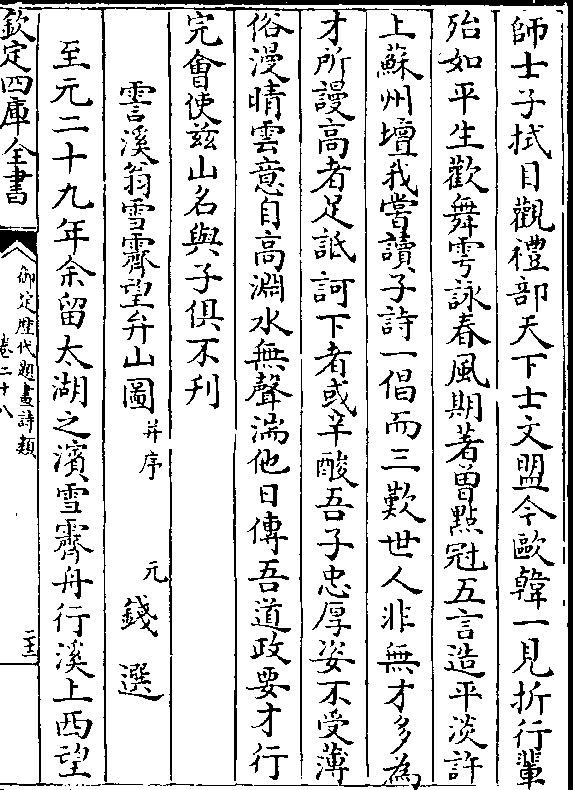 師士子拭目觀禮部天下士文盟今歐韓一見折行輩
殆如平生歡舞雩詠春風期著曾點冠五言造平淡許
上蘇州壇我嘗讀子詩一倡而三歎世人非無才多為
才所謾高者足詆訶下者或辛酸吾子忠厚姿不受薄
俗漫晴雲意自高淵水無聲湍他日傳吾道政要才行
完會使兹山名與子俱不刋
霅溪翁雪霽望弁山圖 并序 元 錢選
至元二十九年余留太湖之濱雪霽舟行溪上西望
欽定四庫全書
御定歷代題畫詩類
卷二十八
二十二